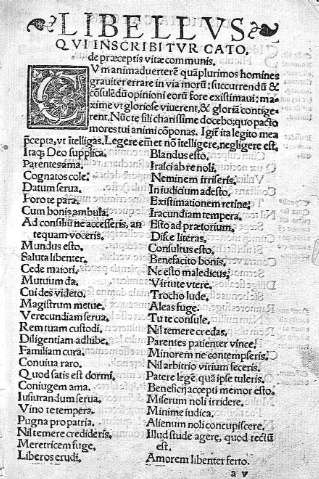 LIBELLVS
QVI INSCRIBITVR CATO,
de præceptis vitæ communis.
CVm animaduerterē quàplurimos homines
grauiter errare in via morū: succurrendū &
cōsulēdū opinioni eorū fore existimaui: ma
xime vt gloriose viuerent, & gloriā contige-
rent. Nūc te fili charissime docebo: quo pacto
mores tui animi cōponas. Igit̃ ita legito mea
p̄cepta, vt ītelligas. Legere em̄ et nō ītelligere, negligere est.
Itaq; Deo supplica.
Parentes ama,
Cognatos cole,
Datum serua.
Foro te para.
Cum bonis ambula.
Ad consiliū ne accesseris, an
tequam voceris.
Mundus esto,
Saluta libenter.
Cede maiori,
Mutuum da,
Cui des videto,
Magistrum metue,
Verecundiam serua,
Rem tuam custodi,
Diligentiam adhibe.
Familiam cura.
Conuiua raro.
Quod satis est dormi.
Coniugem ama.
Iusiurandum serua.
Vino te tempera.
Pugna pro patria.
Nil temere credideris.
Meretricem fuge.
Liberos erudi.
Blandus esto.
Irasci ab re noli.
Neminem irriseris.
In iudicium adesto.
Existimationem retine,
Iracundiam tempera.
Esto ad prætorium.
Disce literas,
Consultus esto.
Benefacito bonis,
Ne esto maledicus,
Virtute vtere.
Trocho lude,
Aleas fuge.
Tu te consule.
Nil temere credas,
Parentes patienter vince,
Minorem ne contempseris.
Nil arbitrio virium feceris.
Patere legē quā ipse tuleris.
Beneficij accepti memor esto.
Miserum noli irridere.
Minime iudica,
Alienum noli concupiscere.
Illud stude agere, quod iectū
est.
Amorem libenter ferto.
a v